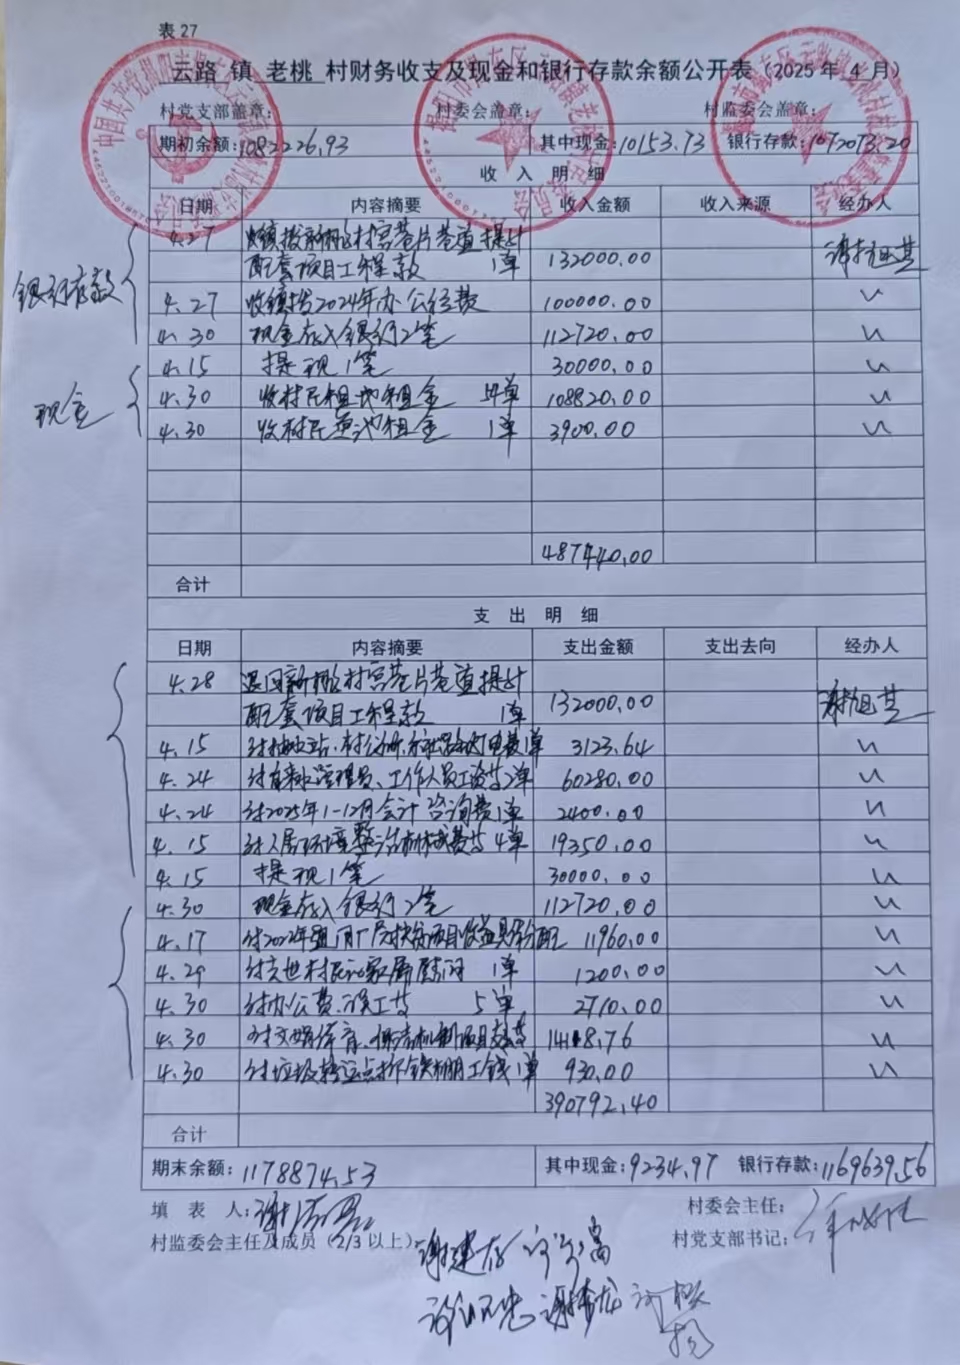 表 27
云路 镇 老桃 村财务收支及现金和银行存款余额公开表（2025 年 4 月）
村党支部盖章： 村委会盖章： 村监委会盖章：
期初余额：1082226.93 其中现金：10153.73 银行存款：1072073.20
收 入 明 细
日期 内容摘要 收入金额 收入来源 经办人
银行存款
4.27 收镇拨新桃村宫巷片巷道提升
配套项目工程款 1单 132000.00
4.27 收镇拨2024年办公经费 100000.00 〃
4.30 现金存入银行2笔 112720.00 〃
现金
4.15 提现1笔 30000.00 〃
4.30 收村民租地租金 单 108820.00 〃
4.30 收村民鱼池租金 1单 3900.00 〃
487440.00
合计
支 出 明 细
日期 内容摘要 支出金额 支出去向 经办人
4.28 退回新桃村宫巷片巷道提升
配套项目工程款 1单 132000.00
4.15 付抽水站、村诊所、路灯电费1单 3123.64 〃
4.24 付自来水管理员、工作人员工资等2单 60280.00 〃
4.24 付2025年1-12月会计咨询费1单 2400.00 〃
4.15 付人居环境整治机械费等4单 19350.00 〃
4.15 提现1笔 30000.00 〃
4.30 现金存入银行2笔 112720.00 〃
4.17 付2022年 厂房扶贫项目收益具体分配 11960.00 〃
4.29 付去世村民家属慰问 1单 1200.00 〃
4.30 付办公费、误工等 5单 2710.00 〃
4.30 付文娱体育、保洁机制项目 14118.76 〃
4.30 付垃圾转运点拆铁棚工钱1单 930.00 〃
390792.40
合计
期末余额：1178874.53 其中现金：9234.97 银行存款：1169639.56
填 表 人： 村委会主任：
村监委会主任及成员（2/3 以上）： 村党支部书记：